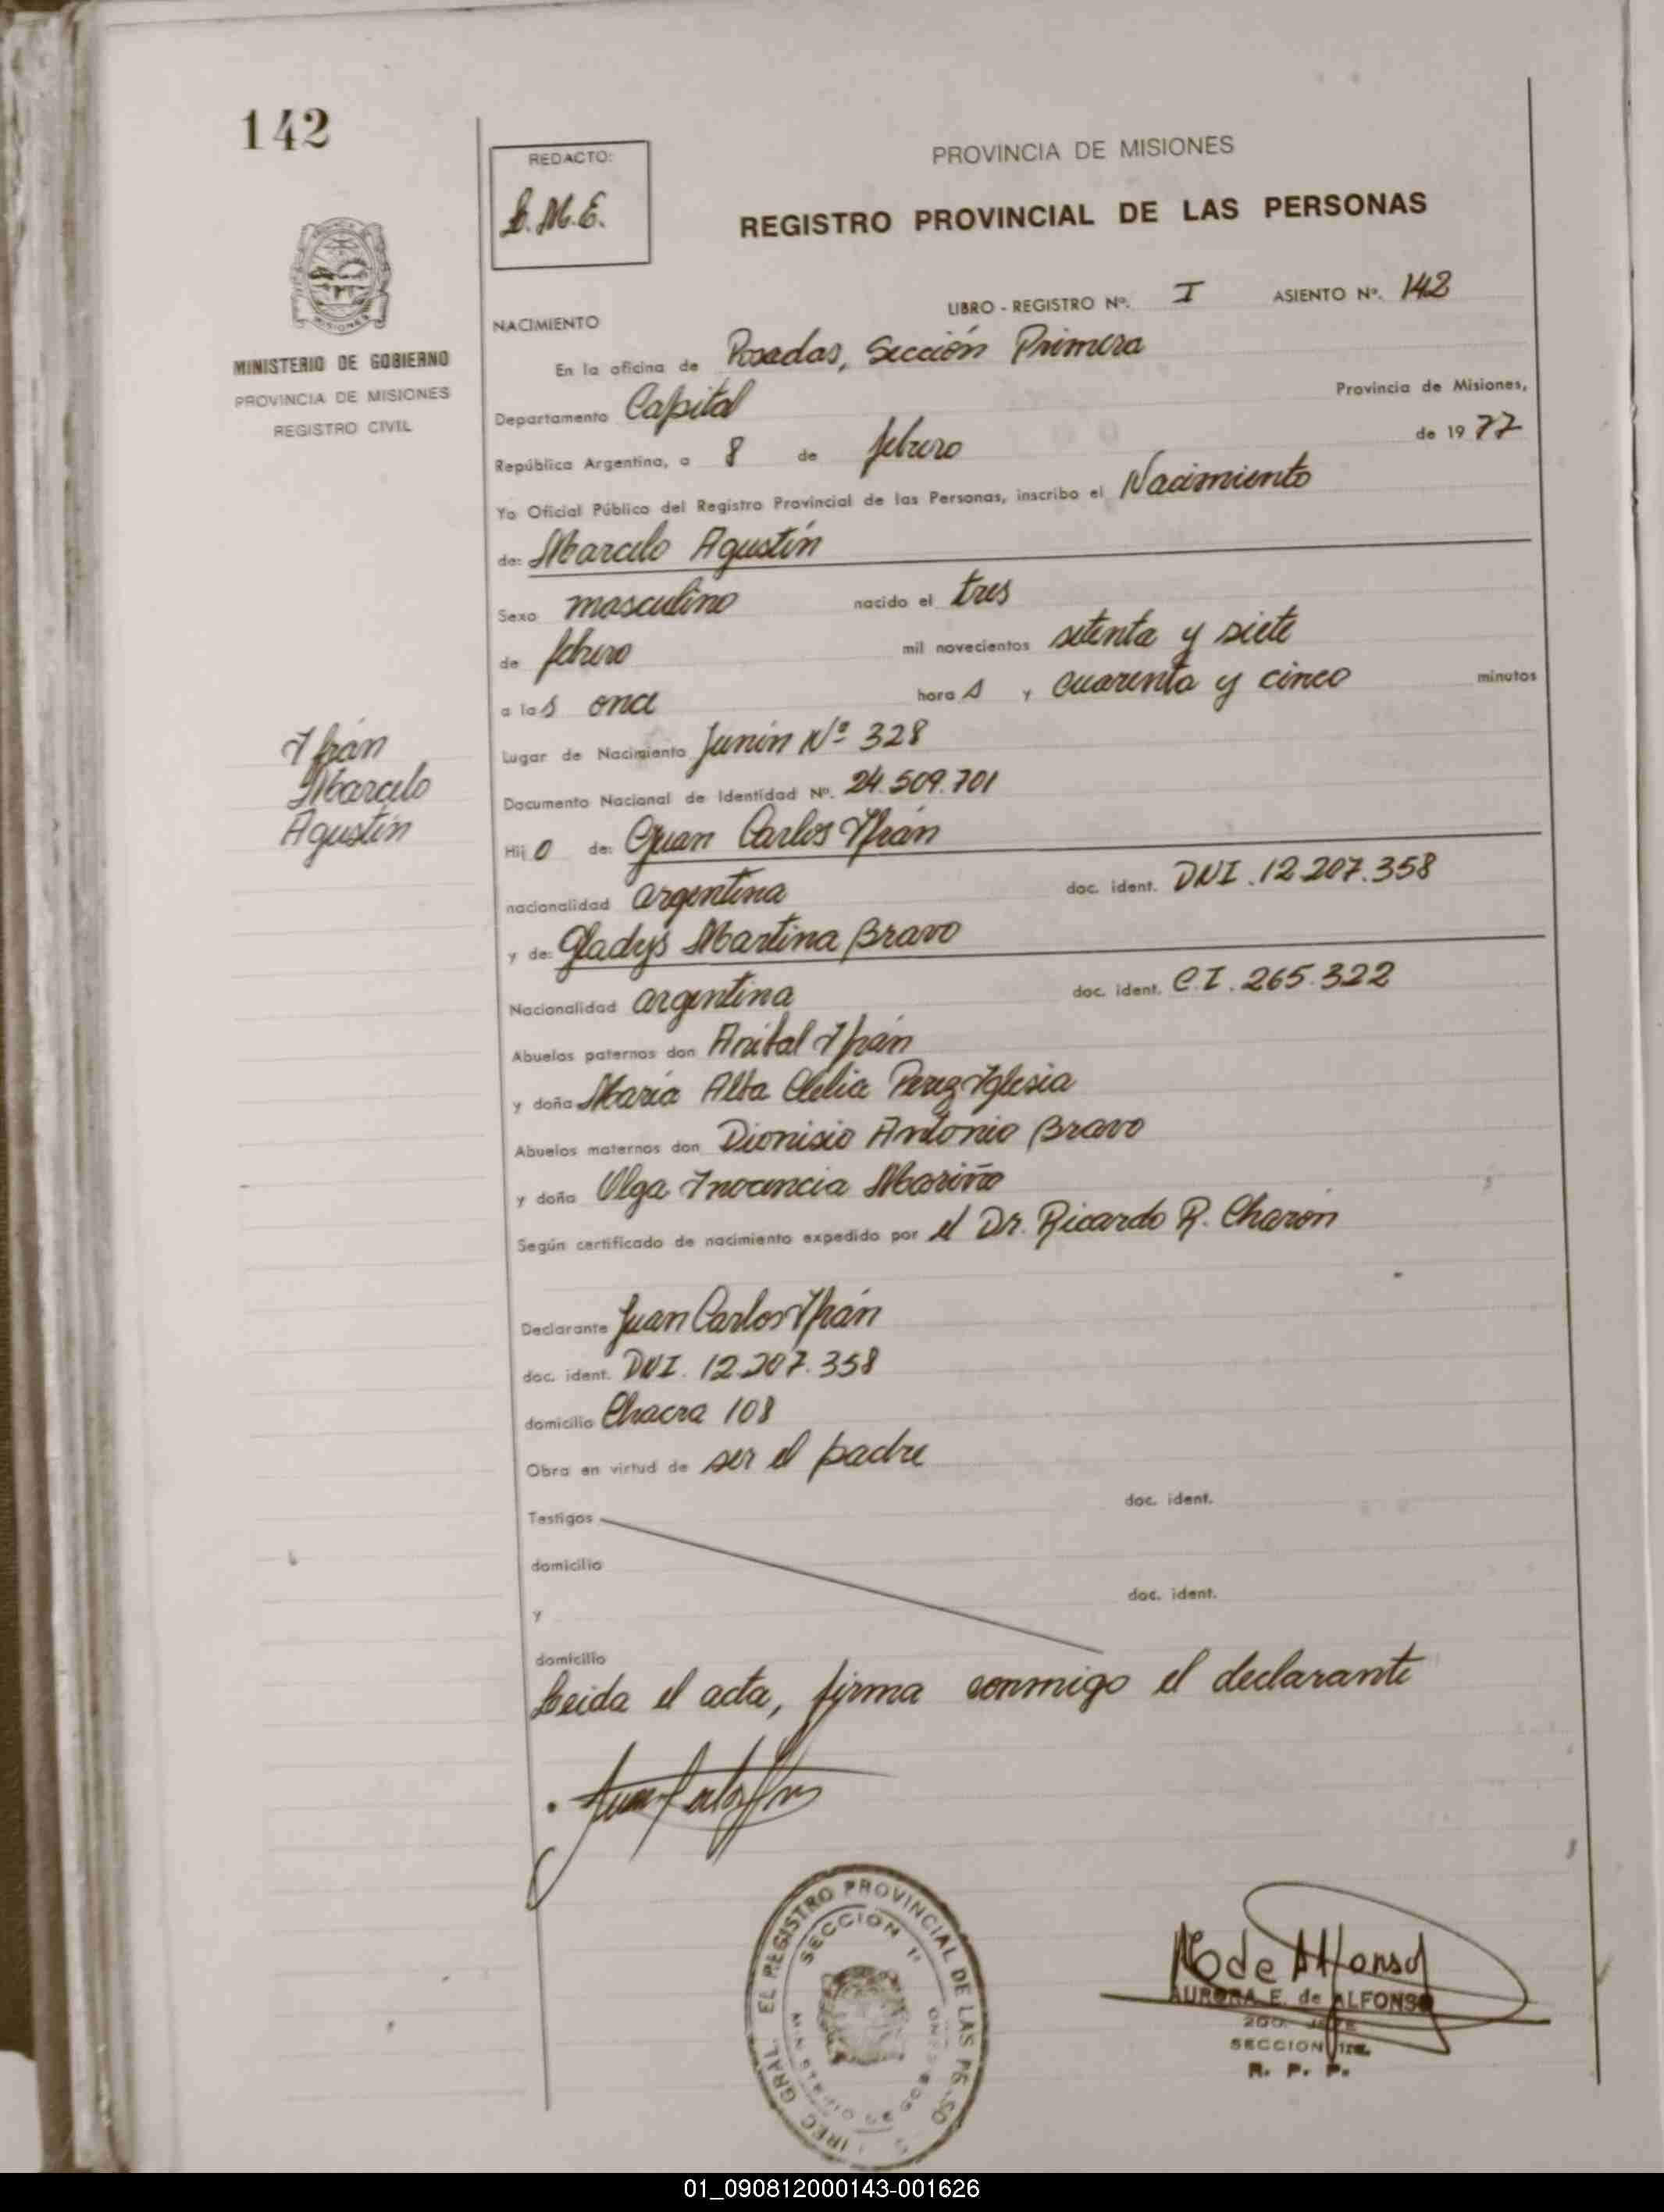 142
REDACTO:
L.M.E.
PROVINCIA DE MISIONES
REGISTRO PROVINCIAL DE LAS PERSONAS
MISIONES
MINISTERIO DE GOBIERNO
PROVINCIA DE MISIONES
REGISTRO CIVIL
LIBRO - REGISTRO Nº. I ASIENTO Nº. 142
NACIMIENTO
En la oficina de Posadas, Sección Primera
Departamento Capital Provincia de Misiones,
República Argentina, a 8 de febrero de 1977
Yo Oficial Público del Registro Provincial de las Personas, inscribo el Nacimiento
de: Marcelo Agustín
Sexo masculino nacido el tres
de febrero mil novecientos setenta y siete
a las once horas y cuarenta y cinco minutos
Ifrán
Marcelo
Agustín
Lugar de Nacimiento Junín Nº 328
Documento Nacional de Identidad Nº. 24.509.701
Hijo de: Juan Carlos Ifrán
nacionalidad argentina doc. ident. DNI. 12.207.358
y de: Gladys Martina Bravo
Nacionalidad argentina doc. ident. C.I. 265.322
Abuelos paternos don Anibal Ifrán
y doña María Alba Clelia Perez Iglesia
Abuelos maternos don Dionisio Antonio Bravo
y doña Olga Inocencia Mariño
Según certificado de nacimiento expedido por el Dr. Ricardo R. Charón
Declarante Juan Carlos Ifrán
doc. ident. DNI. 12.207.358
domicilio Chacra 108
Obra en virtud de ser el padre
doc. ident.
Testigos
domicilio
doc. ident.
y
domicilio
Leida el acta, firma conmigo el declarante
EL REGISTRO PROVINCIAL DE LAS
SECCION 1ª
A E de Alfonso
AURORA E. de ALFONSO
2DO. JEFE
SECCION 1ra.
R. P. P.
01_090812000143-001626